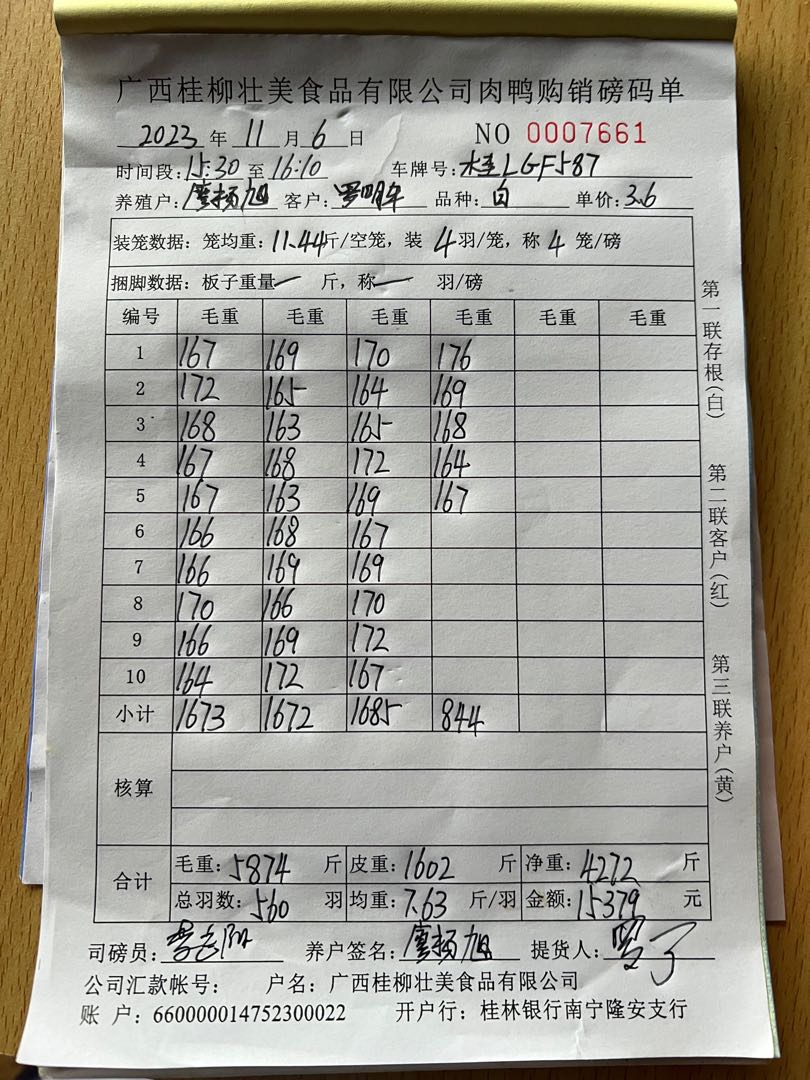 广西桂柳壮美食品有限公司肉鸭购销磅码单
2023 年 11 月 6 日 NO 0007661
时间段:15:30 至 16:10 车牌号: LGF587
养殖户: 廖扬旭 客户: 罗明年 品种: 白 单价: 3.6
装笼数据: 笼均重: 11.44斤/空笼, 装 4 羽/笼, 称 4 笼/磅
捆脚数据: 板子重量 — 斤, 称 — 羽/磅
编号 毛重 毛重 毛重 毛重 毛重 毛重
1 167 169 170 176
2 172 165 164 169
3 168 163 165 168
4 167 168 172 164
5 167 163 169 167
6 166 168 167
7 166 169 169
8 170 166 170
9 166 169 172
10 164 172 167
小计 1673 1672 1685 844
核算
合计 毛重: 5874 斤 皮重: 1602 斤 净重: 4272 斤
总羽数: 560 羽 均重: 7.63 斤/羽 金额: 15379 元
司磅员: 养户签名: 廖扬旭 提货人:
公司汇款帐号: 户名: 广西桂柳壮美食品有限公司
账 户: 660000014752300022 开户行: 桂林银行南宁隆安支行
第一联存根(白)
第二联客户(红)
第三联养户(黄)